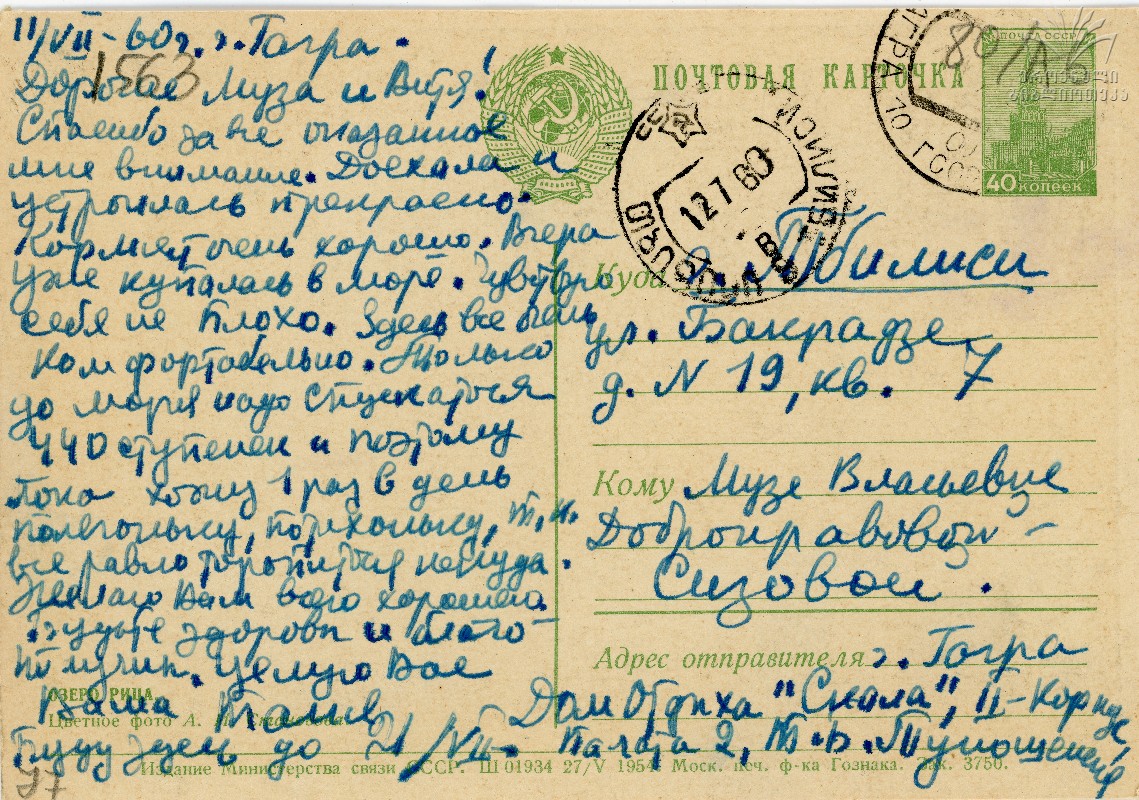 11/VII-60г. г. Гагра.
1563
Дорогие Муза и Витя!
Спасибо за все оказанное
мне внимание. Доехала и
устроилась прекрасно.
Кормят очень хорошо. Вчера
уже купалась в море. Чувствую
себя не плохо. Здесь все очень
комфортабельно. Только
до моря надо спускаться
440 ступенек и поэтому
пока хожу 1 раз в день
полегоньку, потихоньку, т.к.
все равно торопиться некуда.
Желаю Вам всего хорошего.
Будьте здоровы и благо-
получны. Целую Вас
Ваша
Буду здесь до 21/VII-
ОЗЕРО РИЦА.
Цветное фото А.
ПОЧТОВАЯ КАРТОЧКА
ПОЧТА СССР
40 КОПЕЕК
80/А
ГАГРА ГССР
ТБИЛИСИ
12 7 60
Куда г. Тбилиси
ул. Бакрадзе
д. N 19, кв. 7
Кому Музе Власьевне
Доброправовой-
Сизовой.
Адрес отправителя г. Гагра
Дом Отдыха "Скала", II-Корпус,
Палата 2, Т.В.
Издание Министерства связи СССР. Ш 01934 27/V 1954. Моск. печ. ф-ка Гознака. Зак. 3750.